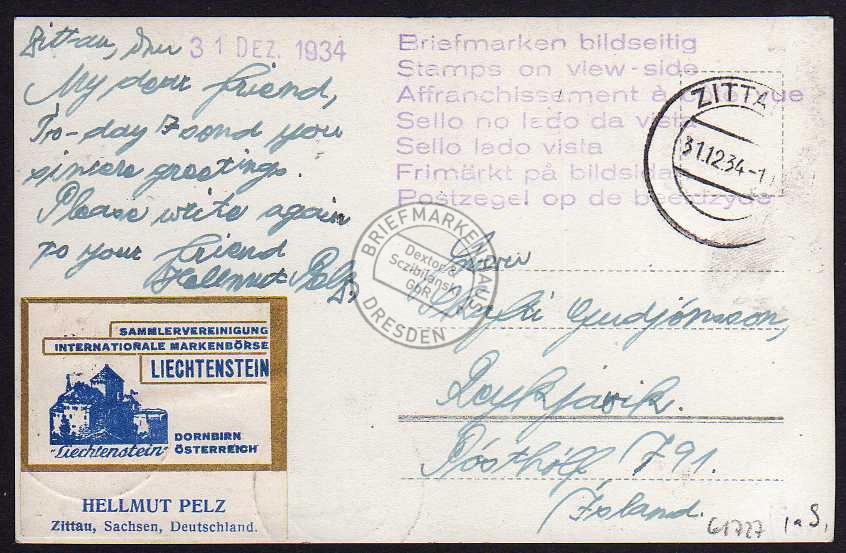 Zittau, den 31 DEZ. 1934
My dear friend,
To-day I send you
sincere greetings.
Please write again
to your friend
Hellmut Pelz
Briefmarken bildseitig
Stamps on view-side
Affranchissement à côté vue
Sello no lado da vista
Sello lado vista
Frimärkt på bildsidan
Postzegel op de beeldzyde
ZITTA
31.12.34-1
BRIEFMARKENHAUS
Dextor &
Sczibilanski
GbR
DRESDEN
Herrn
Gudjónsson,
Reykjavik.
Pósthólf 791.
Ísland.
61727
SAMMLERVEREINIGUNG
INTERNATIONALE MARKENBÖRSE
LIECHTENSTEIN
DORNBIRN
ÖSTERREICH
"Liechtenstein"
HELLMUT PELZ
Zittau, Sachsen, Deutschland.